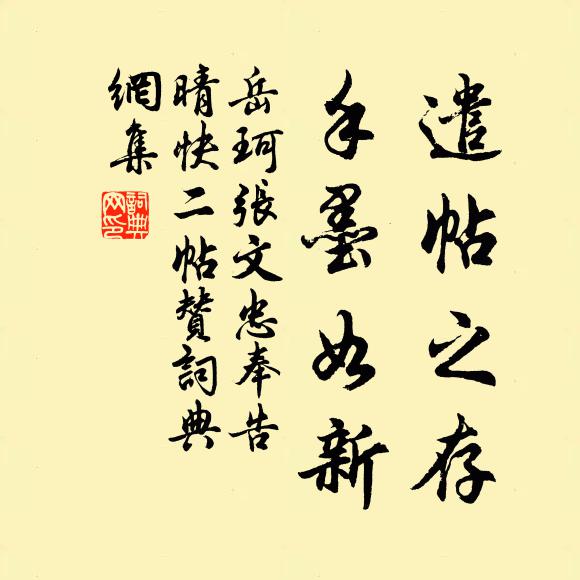 遣帖之存
手墨如新
岳珂張文忠奉告
晴快二帖贊詞典
網集
詞典
网印